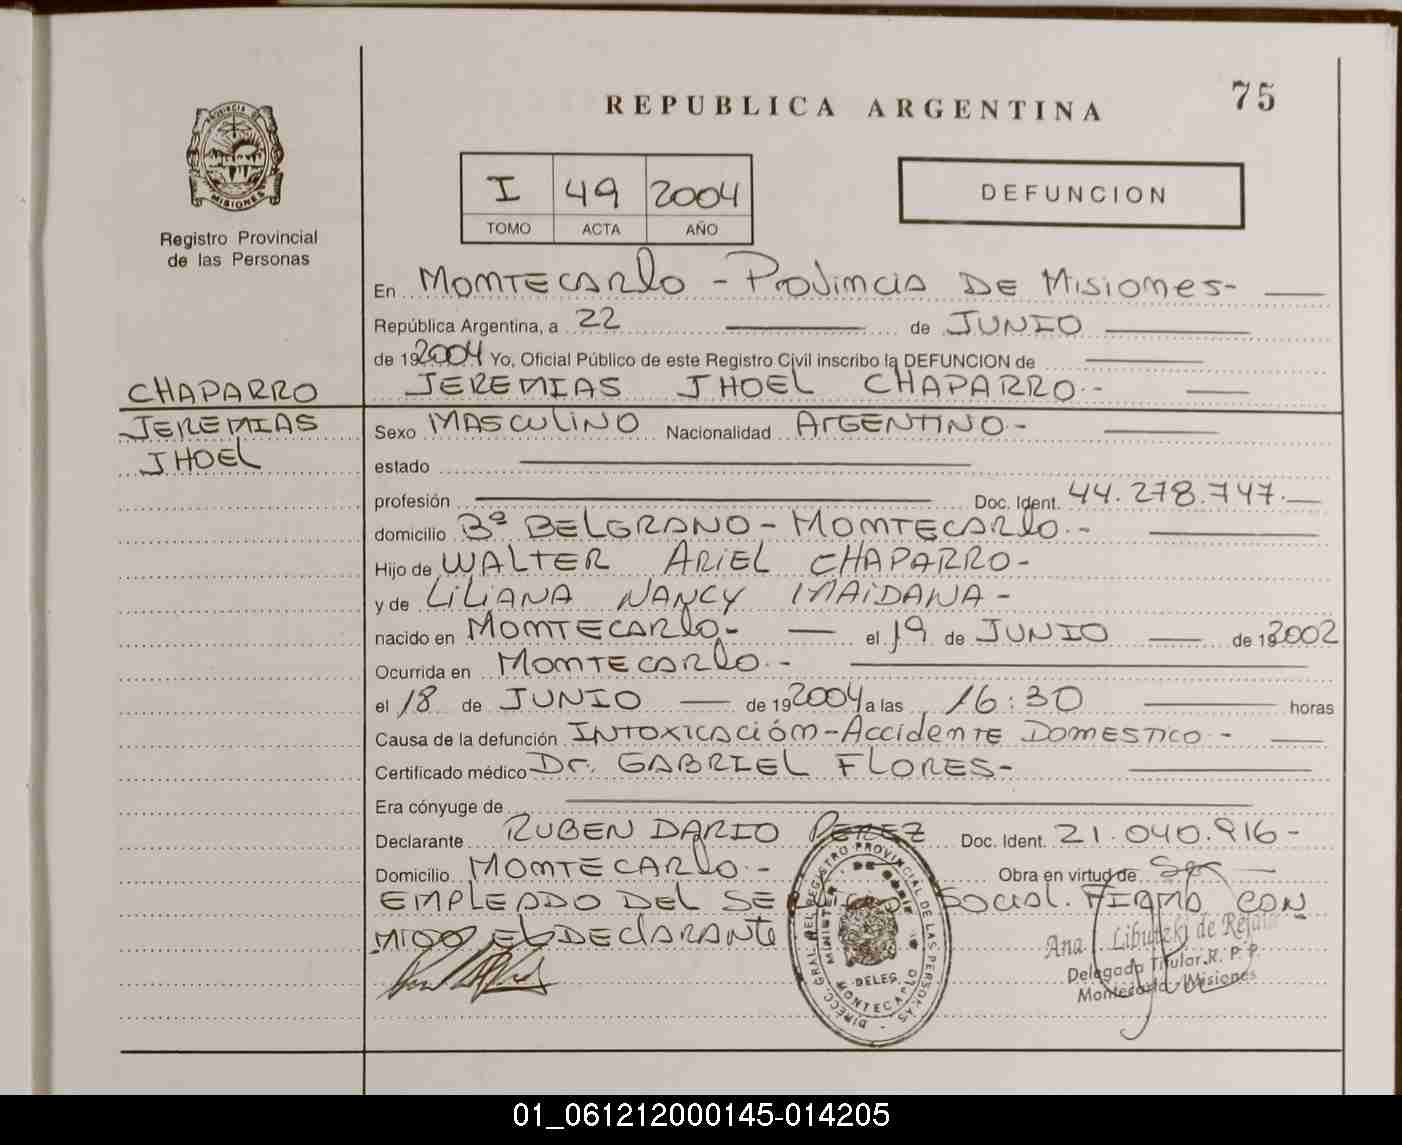 75
REPUBLICA ARGENTINA
PROVINCIA DE
MISIONES
Registro Provincial
de las Personas
I 49 2004
TOMO ACTA AÑO
DEFUNCION
En MONTECARLO - PROVINCIA DE MISIONES-
República Argentina, a 22 de JUNIO
de 192004 Yo, Oficial Público de este Registro Civil inscribo la DEFUNCION de
CHAPARRO JEREMIAS JHOEL CHAPARRO.-
JEREMIAS
JHOEL
Sexo MASCULINO Nacionalidad ARGENTINO-
estado
profesión Doc. Ident. 44.278.747.
domicilio Bº BELGRANO-MONTECARLO.-
Hijo de WALTER ARIEL CHAPARRO-
y de LILIANA NANCY MAIDANA-
nacido en MONTECARLO- el 19 de JUNIO de 192002
Ocurrida en MONTECARLO.-
el 18 de JUNIO de 192004 a las 16:30 horas
Causa de la defunción INTOXICACIÓN-ACCIDENTE DOMESTICO-
Certificado médico Dr. GABRIEL FLORES-
Era cónyuge de
Declarante RUBEN DARIO PEREZ Doc. Ident. 21.040.916-
Domicilio MONTECARLO.- Obra en virtud de Ser
EMPLEADO DEL SE SOCIAL. FIRMA CON
MIGO EL DECLARANTE
DIRECC. GRAL. DEL REGISTRO PROVINCIAL DE LAS PERSONAS
DELEG.
MONTECARLO
Ana Libutzki de
Delegada Titular R. P. P.
Montecarlo - Misiones
01_061212000145-014205